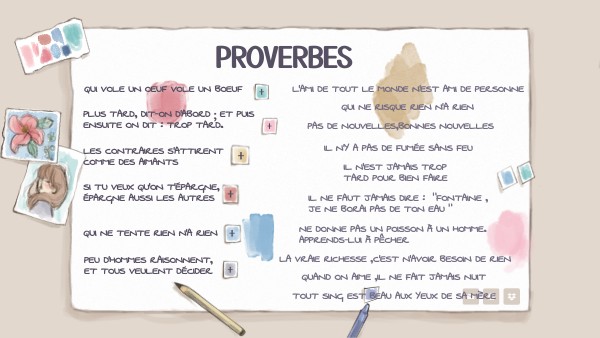 PROVERBES
QUI VOLE UN OEUF VOLE UN BOEUF
PLUS TARD, DIT-ON D'ABORD ; ET PUIS
ENSUITE ON DIT : TROP TARD.
LES CONTRAIRES S'ATTIRENT
COMME DES AMANTS
SI TU VEUX QU'ON T'ÉPARGNE,
ÉPARGNE AUSSI LES AUTRES
QUI NE TENTE RIEN N'A RIEN
PEU D'HOMMES RAISONNENT,
ET TOUS VEULENT DÉCIDER
L'AMI DE TOUT LE MONDE N'EST AMI DE PERSONNE
QUI NE RISQUE RIEN N'A RIEN
PAS DE NOUVELLES,BONNES NOUVELLES
IL N'Y A PAS DE FUMÉE SANS FEU
IL N'EST JAMAIS TROP
TARD POUR BIEN FAIRE
IL NE FAUT JAMAIS DIRE : "FONTAINE ,
JE NE BORAI PAS DE TON EAU "
NE DONNE PAS UN POISSON À UN HOMME.
APPRENDS-LUI À PÊCHER
LA VRAIE RICHESSE ,C'EST N'AVOIR BESOIN DE RIEN
QUAND ON AIME ,IL NE FAIT JAMAIS NUIT
TOUT SINGE EST BEAU AUX YEUX DE SA MÈRE